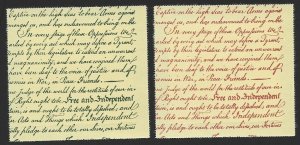 Captive on the high Seas to bear Arms against
mongst us, and has endeavoured to bring on the
In every stage of these Oppressions We
ked by every act which may define a Tyrant,
by their legislature to extend an unwarrant
and magnanimity, and we have conjured them
have been deaf to the voice of justice and of
in War, in Peace Friends.
Judge of the world for the rectitude of our in
Right ought to be Free and Independent
is and ought to be totally dissolved; and
her Acts and Things which Independent
ally pledge to each other our Lives, our Fortunes
Captive on the high Seas to bear Arms against
mongst us, and has endeavoured to bring on the
In every stage of these Oppressions We
ked by every act which may define a Tyrant,
by their legislature to extend an unwarrant
and magnanimity, and we have conjured them
have been deaf to the voice of justice and of
in War, in Peace Friends.
Judge of the world for the rectitude of our in
Right ought to be Free and Independent
is and ought to be totally dissolved; and
her Acts and Things which Independent
ally pledge to each other our Lives, our Fortunes